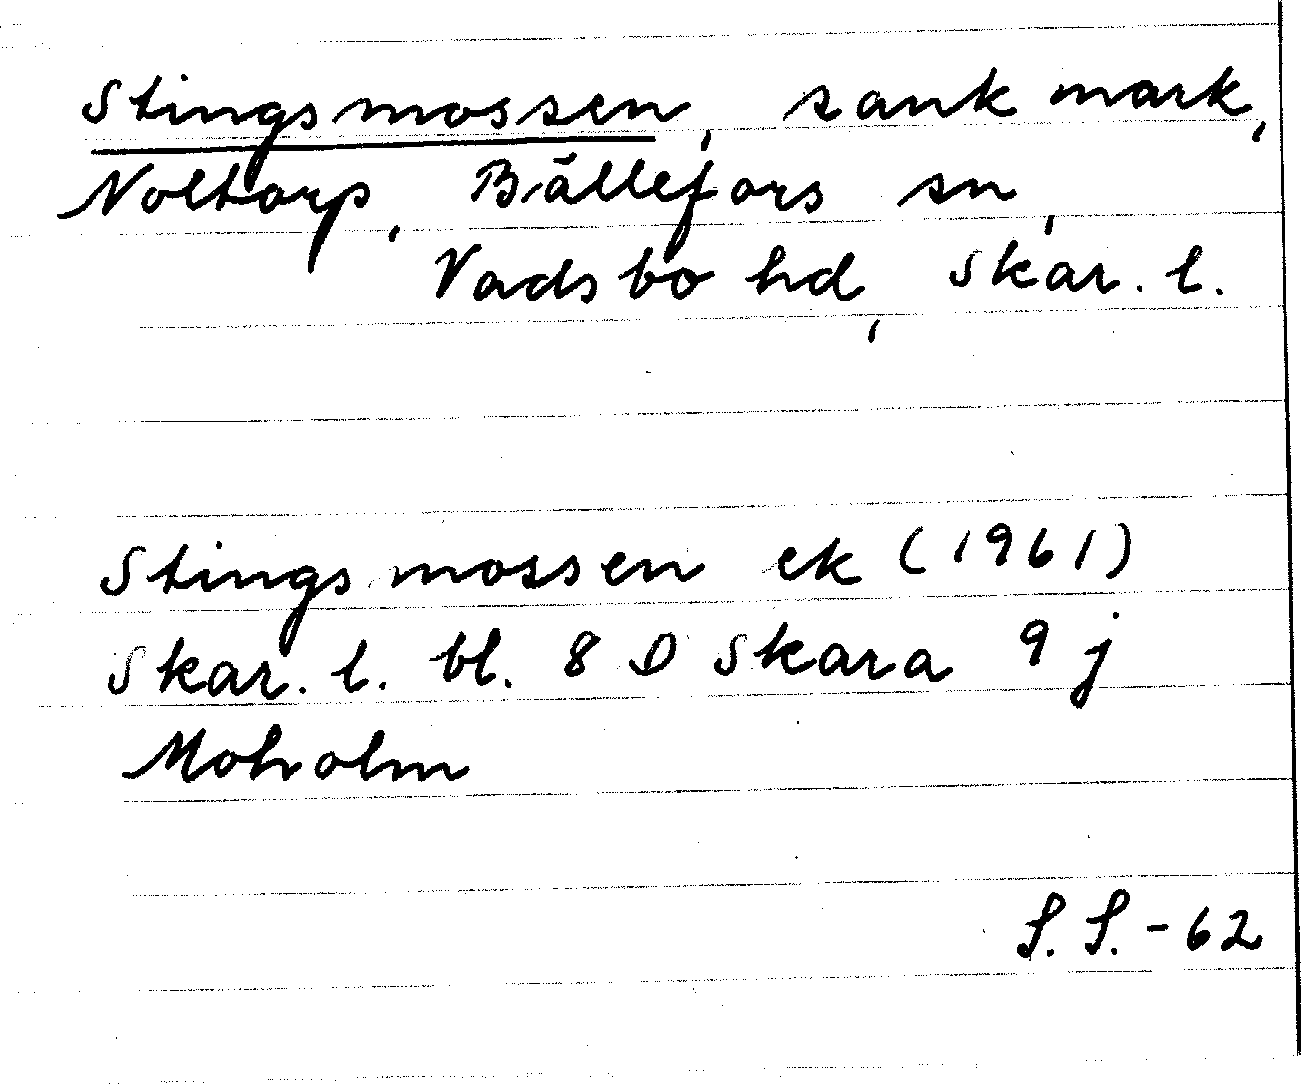 Stingsmossen, sank mark,
Noltorp, Bällefors sn,
Vadsbo hd, Skar. l.
Stingsmossen ek (1961)
Skar. l. bl. 8 D Skara 9 j
Moholm
S. S. - 62